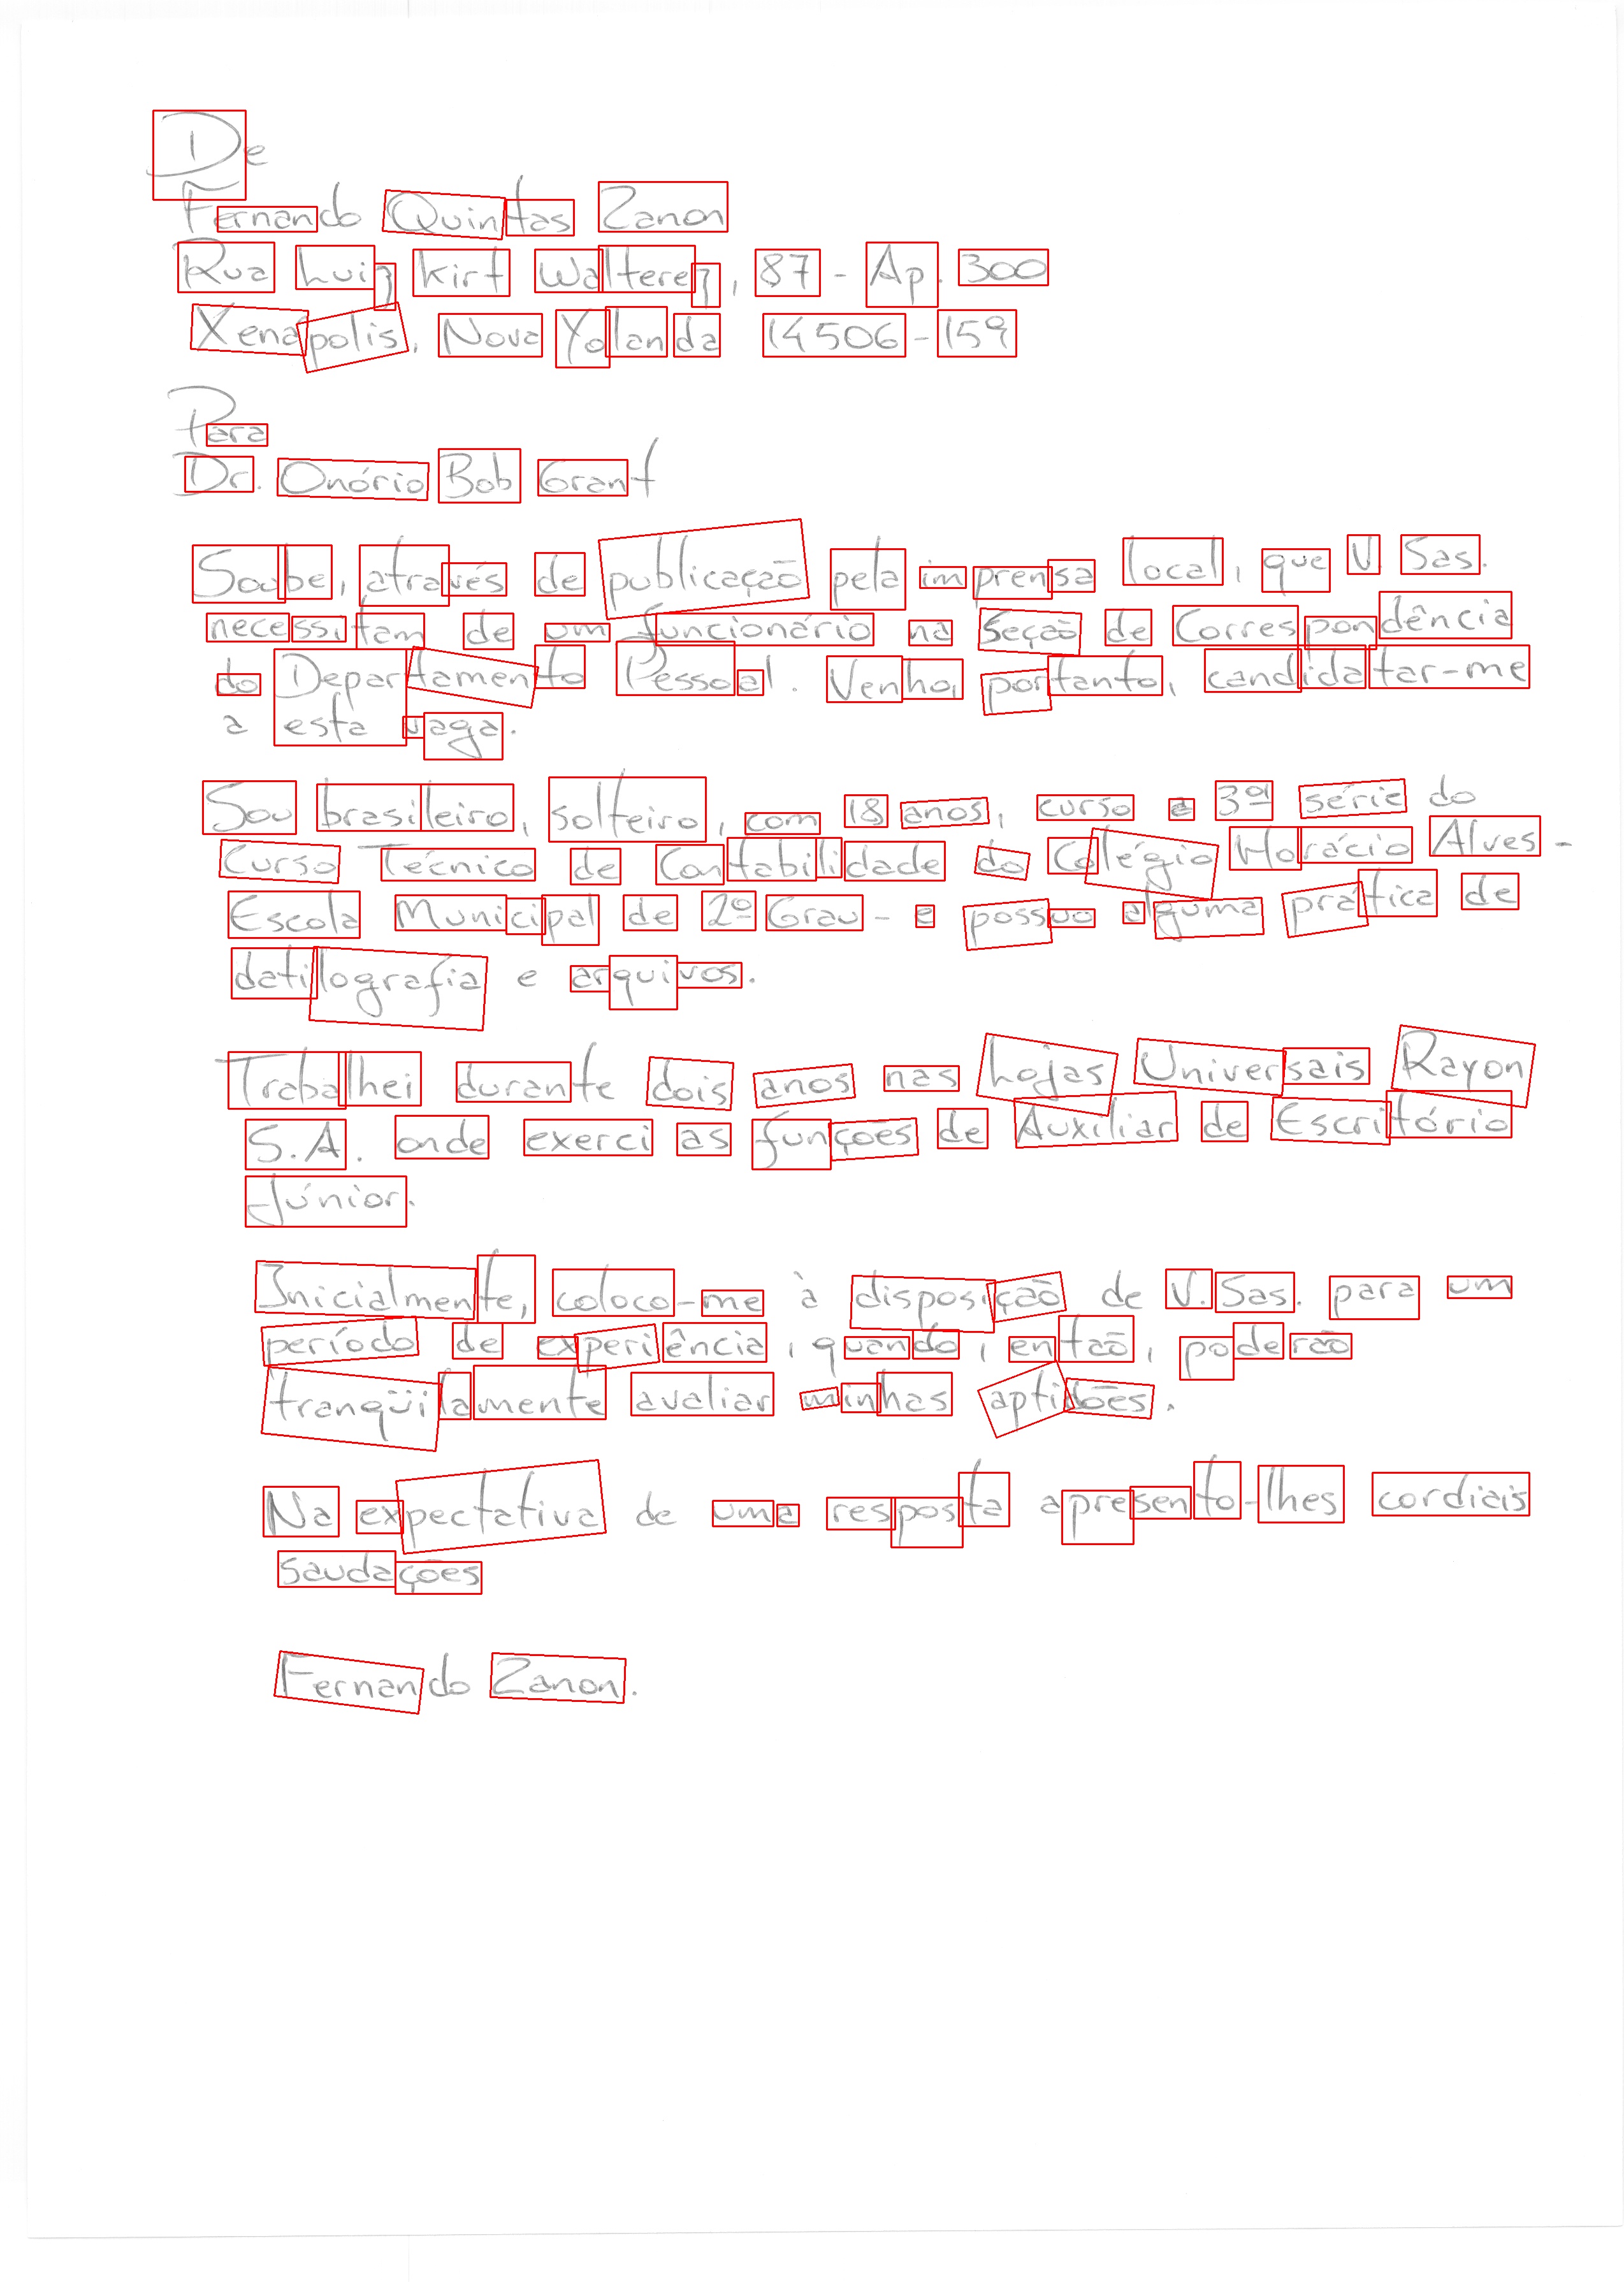 De
Fernando Quintas Zanon
Rua Luiz Kirt Walterez, 87 - Ap. 300
Xenápolis, Nova Yolanda 14506-159
Para
Dr. Onório Bob Grant
Soube, através de publicação pela imprensa local, que V. Sas.
necessitam de um funcionário na Seção de Correspondência
do Departamento Pessoal. Venho, portanto, candidatar-me
a esta vaga.
Sou brasileiro, solteiro, com 18 anos, curso a 3ª série do
Curso Técnico de Contabilidade do Colégio Horácio Alves -
Escola Municipal de 2º Grau - e possuo alguma prática de
datilografia e arquivos.
Trabalhei durante dois anos nas Lojas Universais Rayon
S.A. onde exerci as funções de Auxiliar de Escritório
Júnior.
Inicialmente, coloco-me à disposição de V. Sas. para um
período de experiência, quando, então, poderão
tranqüilamente avaliar minhas aptidões.
Na expectativa de uma resposta apresento-lhes cordiais
saudações
Fernando Zanon.